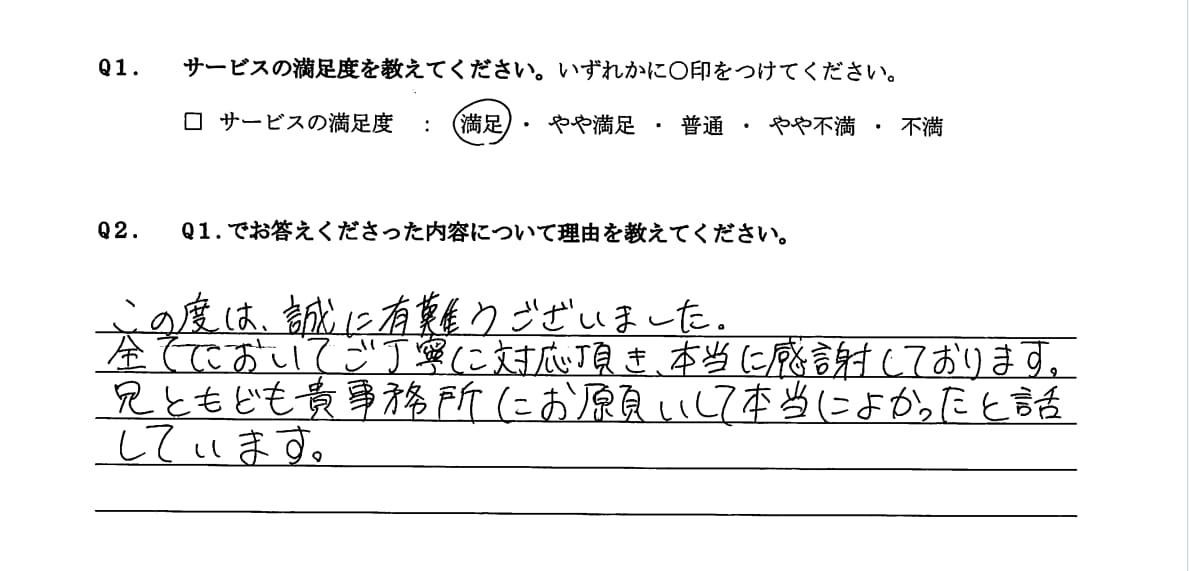 Q1． サービスの満足度を教えてください。いずれかに○印をつけてください。
□ サービスの満足度 ： 満足 ・ やや満足 ・ 普通 ・ やや不満 ・ 不満
Q2． Q1.でお答えくださった内容について理由を教えてください。
この度は、誠に有難うございました。
全てにおいてご丁寧に対応頂き、本当に感謝しております。
兄ともども貴事務所にお願いして本当によかったと話
しています。